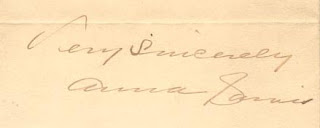 Very Sincerely
Anna Jarvis